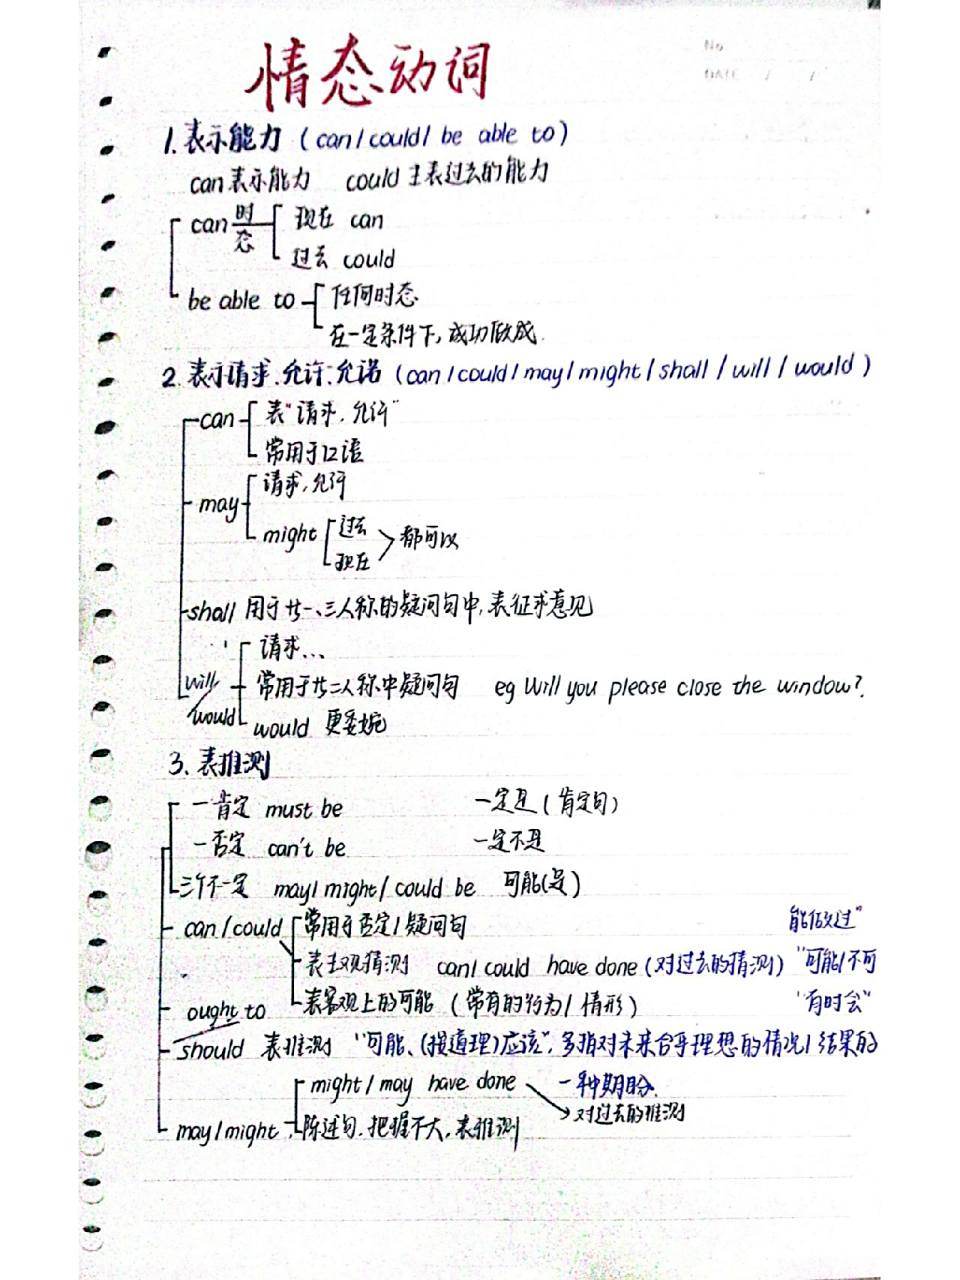 No
DATE / /
情态动词
1.表示能力 (can/could/ be able to)
can表示能力 could主表过去的能力
can时态 现在 can
过去 could
be able to 任何时态
在一定条件下,成功做成.
2.表示请求.允许.允诺 (can/could/may/might/shall/will/would)
can 表"请求,允许"
常用于口语
may 请求,允许
might 过去 现在 都可以
shall 用于廿一、三人称的疑问句中,表征求意见
请求...
will/would 常用于廿二人称中疑问句 eg Will you please close the window?.
would 更委婉
3.表推测
一肯定 must be 一定是(肯定句)
一否定 can't be 一定不是
三个不一定 may/might/could be 可能(是)
can/could 常用于否定/疑问句 能做过"
表主观猜测 can/could have done (对过去的猜测) "可能/不可
表客观上的可能 (常有的行为/情形) "有时会"
ought to
should 表推测 "可能、(按道理)应该",多指对未来合乎理想的情况/结果的
might/may have done 一种期盼.
对过去的推测
may/might 陈述句.把握不大,表推测